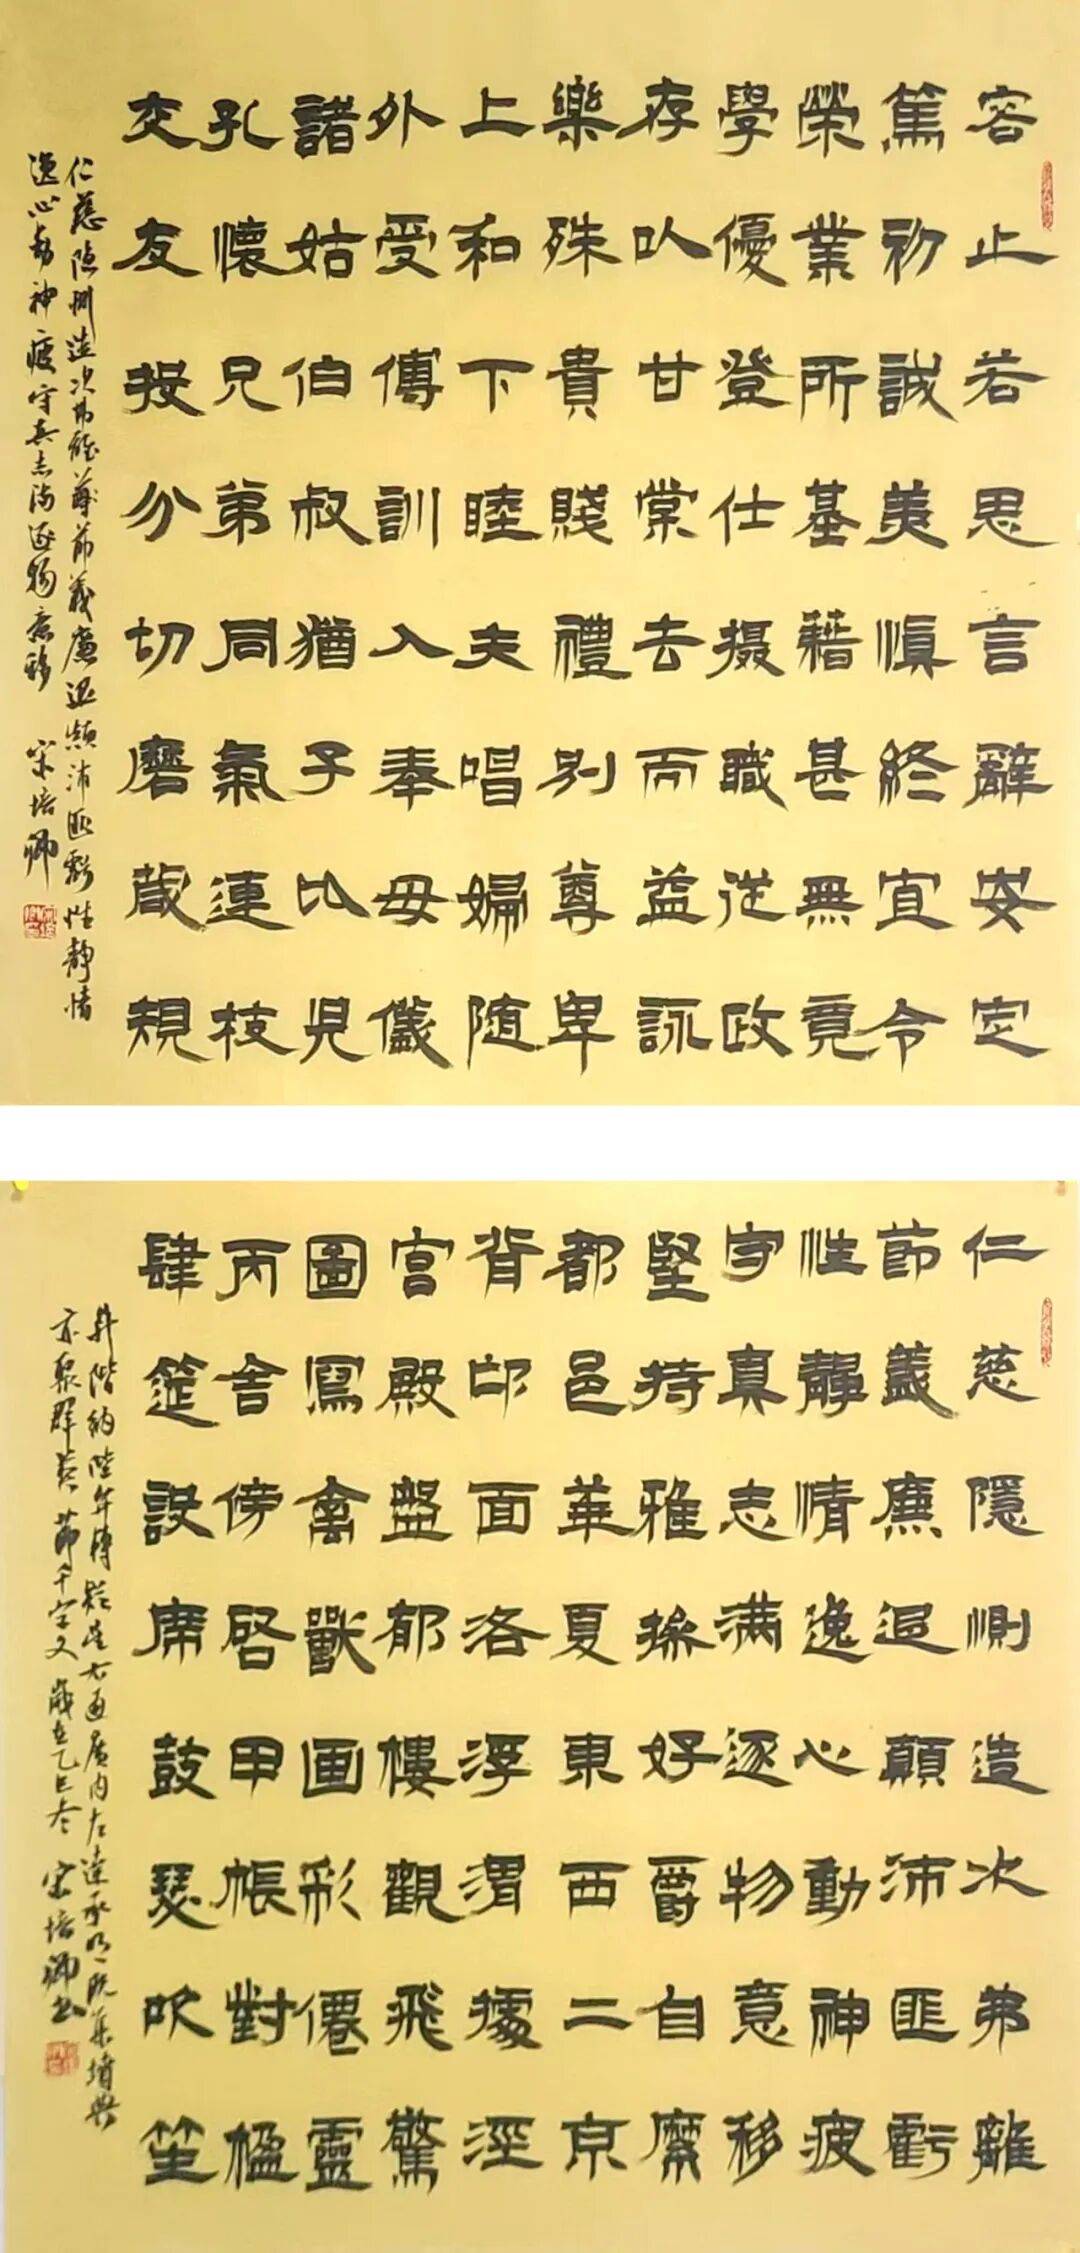 容止若思言辭安定
篤初誠美慎終宜令
榮業所基籍甚無竟
學優登仕攝職從政
存以甘棠去而益詠
樂殊貴賤禮別尊卑
上和下睦夫唱婦隨
外受傅訓入奉母儀
諸姑伯叔猶子比兒
孔懷兄弟同氣連枝
交友投分切磨箴規
仁慈隱惻造次弗離節義廉退顛沛匪虧性靜情
逸心動神疲守真志滿逐物意移 宋培卿
仁慈隱惻造次弗離
節義廉退顛沛匪虧
性靜情逸心動神疲
守真志满逐物意移
堅持雅操好爵自縻
都邑華夏東西二京
背邙面洛浮渭據涇
宮殿盤郁樓觀飛驚
圖寫禽獸画彩僊靈
丙舍傍啓甲帳對楹
肆筵設席鼓瑟吹笙
升階納陛弁轉疑星右通廣内左達承明既集墳典
亦聚群英 節千字文 歲在乙巳冬 宋培卿書